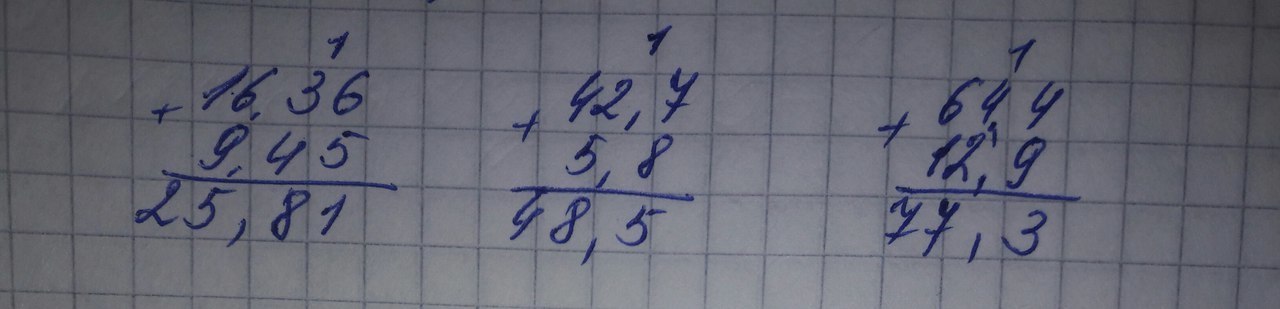 1 1 1
16,36 42,7 64,4
+ + +
9,45 5,8 12,9
25,81 48,5 77,3